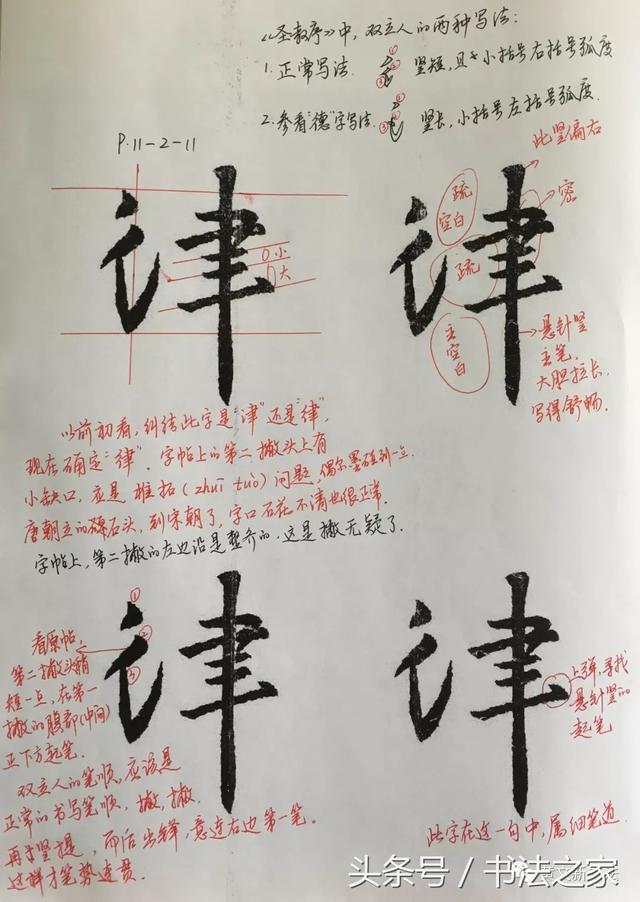 《圣教序》中，双立人的两种写法：
1.正常写法.
①
③
竖短，且是小括号右括号弧度
2.参看“德”字写法.
③
竖长，小括号左括号弧度.
P.11-2-11
律
小
大
律
疏
空白
疏
主
空
白
此竖偏右
密
悬针竖
主笔，
大胆拉长，
写得舒畅.
以前初看，纠结此字是“津”还是“律”，
现在确定“律”.字帖上的第二撇头上有
小缺口，应是椎拓(zhuī tuò)问题，偶尔墨碰到一点.
唐朝立的碑石头，到宋朝了，字口石花不清也很正常.
字帖上，第二撇的左边沿是整齐的，这是撇无疑了.
律
①
②
③
看原帖，
第二撇头稍
短一点，在第一
撇的腹部(中间)
正下方起笔.
双立人的笔顺，应该是
正常的书写笔顺，撇，撇，
再写竖提，而后出锋，意连右边第一笔。
这样才笔势连贯.
律
上弹，寻找
悬针竖的
起笔
此字在这一句中，属细笔道.
头条号 / 书法之家